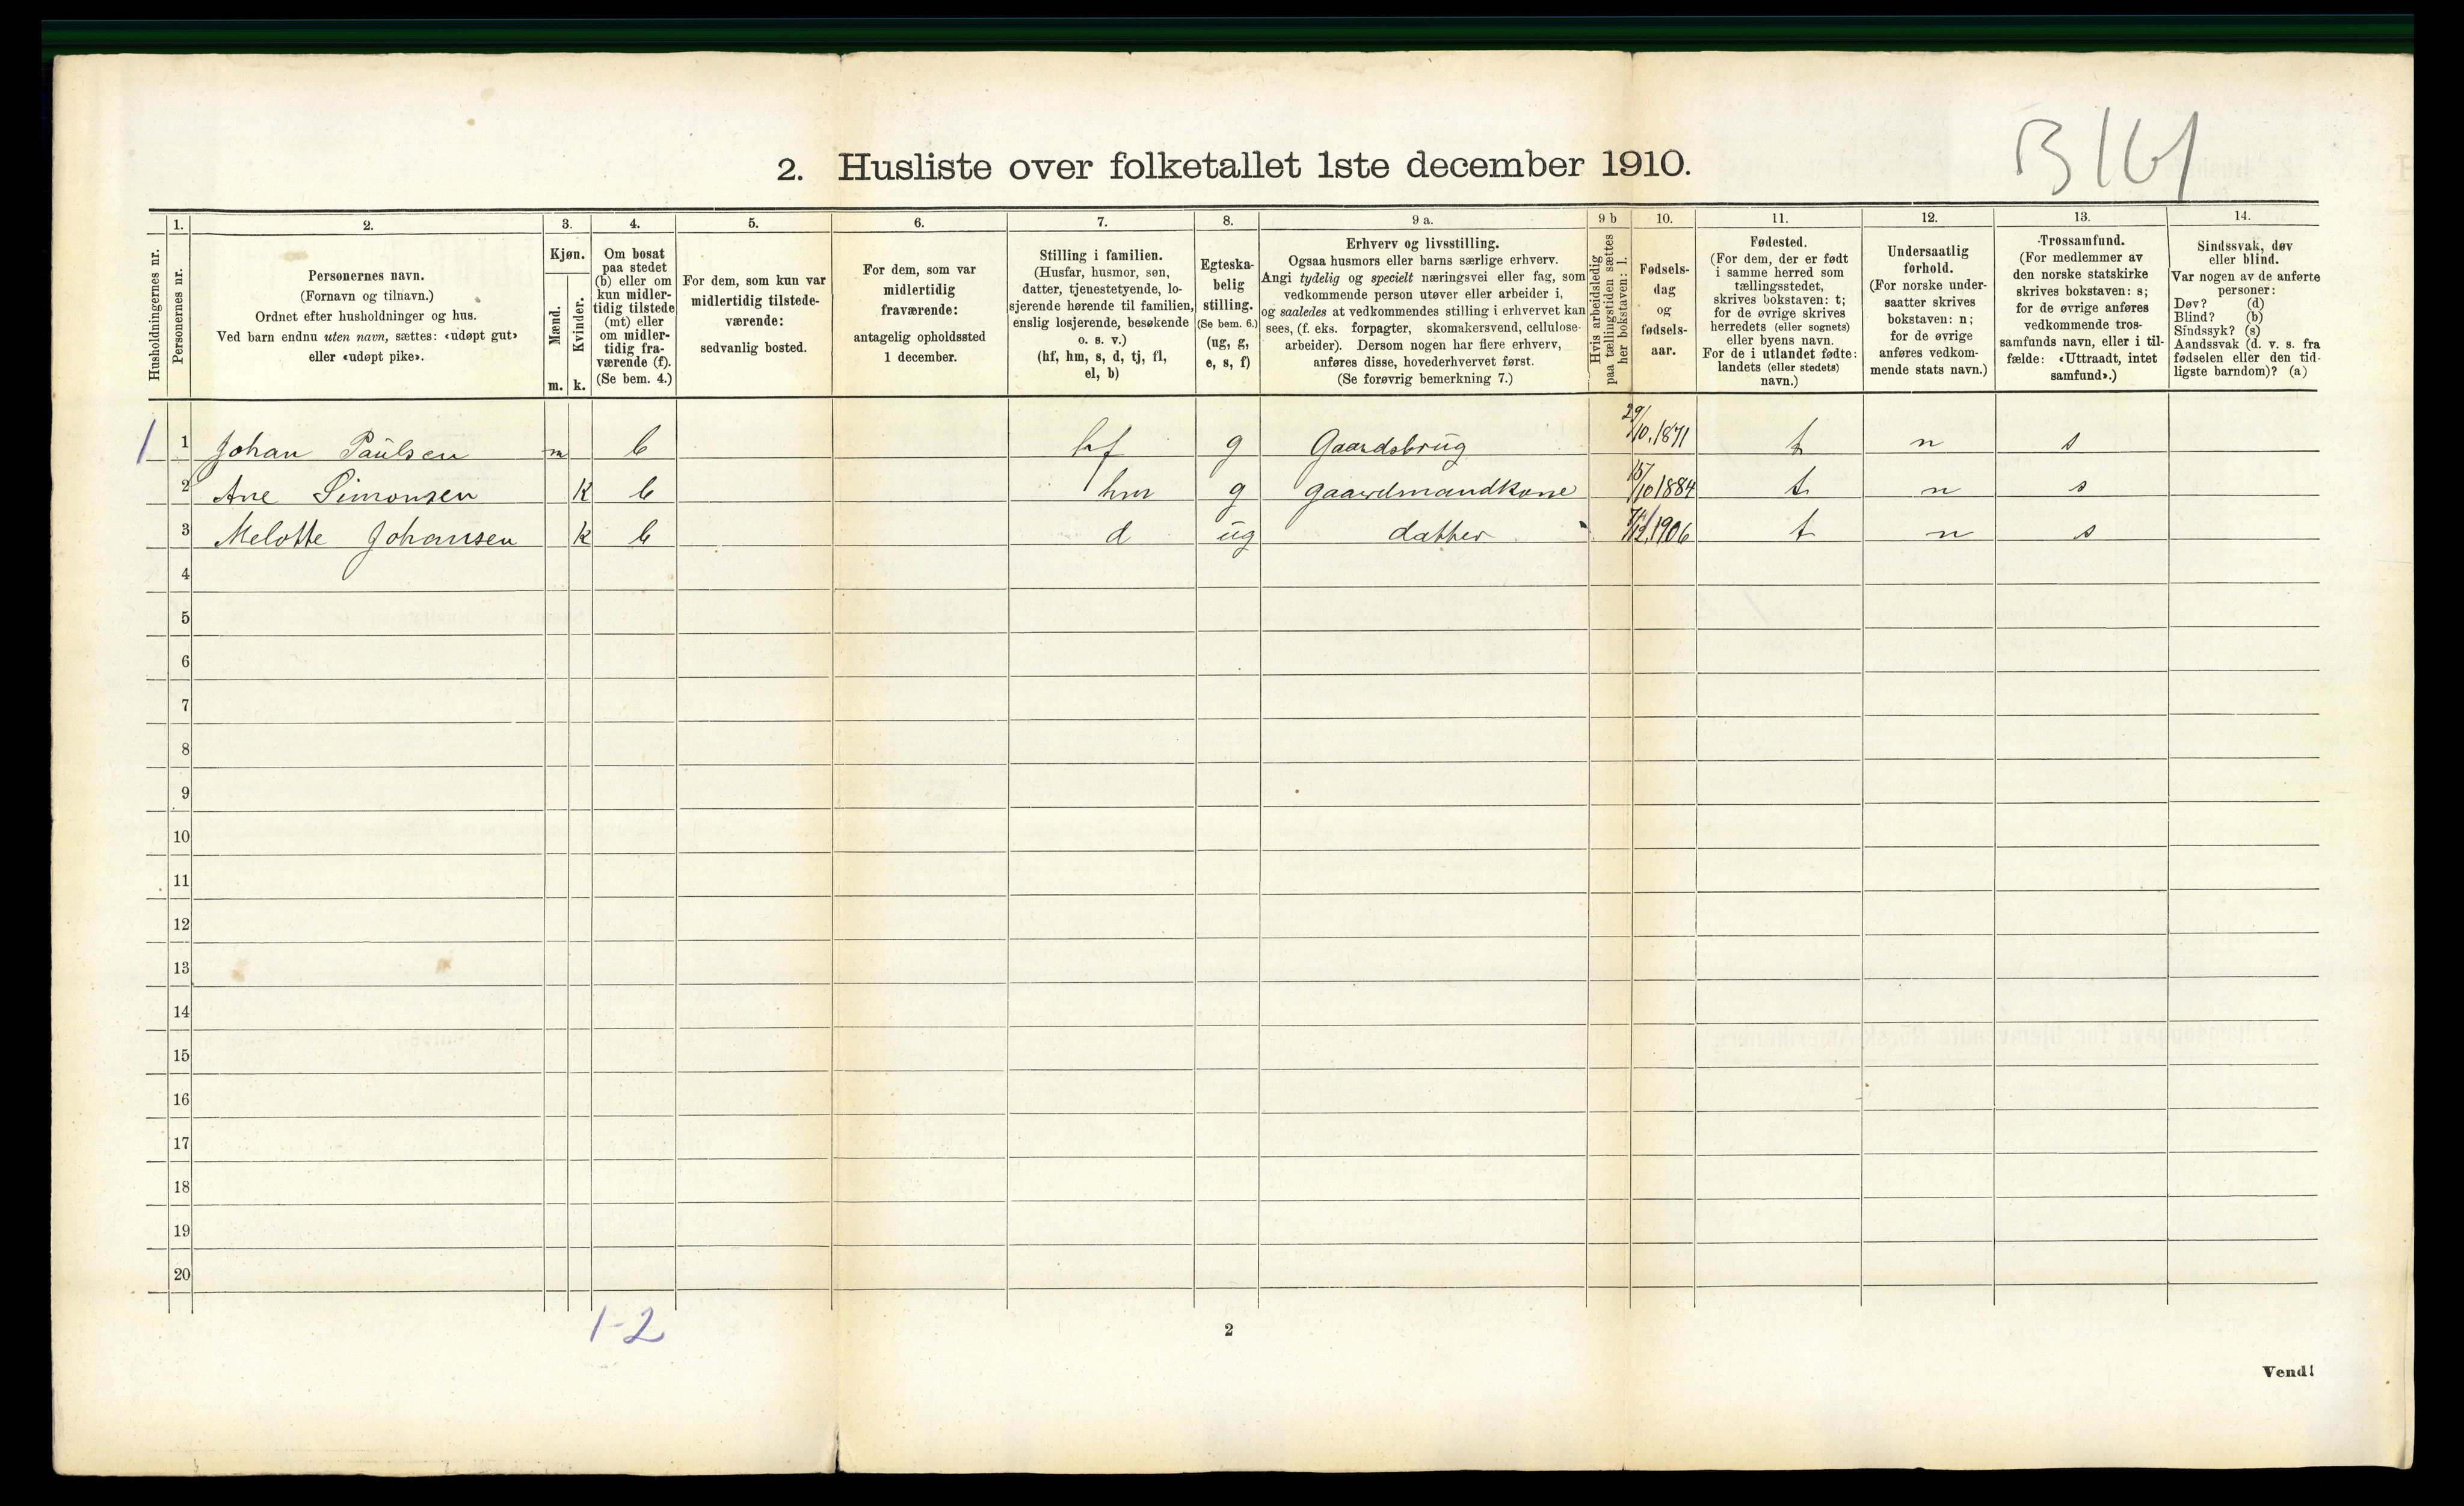 2. Husliste over folketallet 1ste december 1910.
1. 2. 3. 4. 5. 6. 7. 8. 9 a. 9 b 10. 11. 12. 13. 14.
Husholdningernes nr.
Personernes nr.
Personernes navn.
(Fornavn og tilnavn.)
Ordnet efter husholdninger og hus.
Ved barn endnu uten navn, sættes: «udøpt gut»
eller «udøpt pike».
Kjøn.
Mænd.
Kvinder.
m. k.
Om bosat
paa stedet
(b) eller om
kun midler-
tidig tilstede
(mt) eller
om midler-
tidig fra-
værende (f).
(Se bem. 4.)
For dem, som kun var
midlertidig tilstede-
værende:
sedvanlig bosted.
For dem, som var
midlertidig
fraværende:
antagelig opholdssted
1 december.
Stilling i familien.
(Husfar, husmor, søn,
datter, tjenestetyende, lo-
sjerende hørende til familien,
enslig losjerende, besøkende
o. s. v.)
(hf, hm, s, d, tj, fl,
el, b)
Egteska-
belig
stilling.
(Se bem. 6.)
(ug, g,
e, s, f)
Erhverv og livsstilling.
Ogsaa husmors eller barns særlige erhverv.
Angi tydelig og specielt næringsvei eller fag, som
vedkommende person utøver eller arbeider i,
og saaledes at vedkommendes stilling i erhvervet kan
sees, (f. eks. forpagter, skomakersvend, cellulose-
arbeider). Dersom nogen har flere erhverv,
anføres disse, hovederhvervet først.
(Se forøvrig bemerkning 7.)
Hvis arbeidsledig
paa tællingstiden sættes
her bokstaven: l.
Fødsels-
dag
og
fødsels-
aar.
Fødested.
(For dem, der er født
i samme herred som
tællingsstedet,
skrives bokstaven: t;
for de øvrige skrives
herredets (eller sognets)
eller byens navn.
For de i utlandet fødte:
landets (eller stedets)
navn.)
Undersaatlig
forhold.
(For norske under-
saatter skrives
bokstaven: n;
for de øvrige
anføres vedkom-
mende stats navn.)
Trossamfund.
(For medlemmer av
den norske statskirke
skrives bokstaven: s;
for de øvrige anføres
vedkommende tros-
samfunds navn, eller i til-
fælde: «Uttraadt, intet
samfund».)
Sindssvak, døv
eller blind.
Var nogen av de anførte
personer:
Døv? (d)
Blind? (b)
Sindssyk? (s)
Aandssvak (d. v. s. fra
fødselen eller den tid-
ligste barndom)? (a)
1 1 Johan Paulsen m b hf g Gaardsbrug 29/10.1871 t n s
2 Ane Simonsen k b hm g gaardmandkone 15/10 1884 t n s
3 Melotte Johansen k b d ug datter 1906 t n s
4
5
6
7
8
9
10
11
12
13
14
15
16
17
18
19
20
1-2
2
Vend!